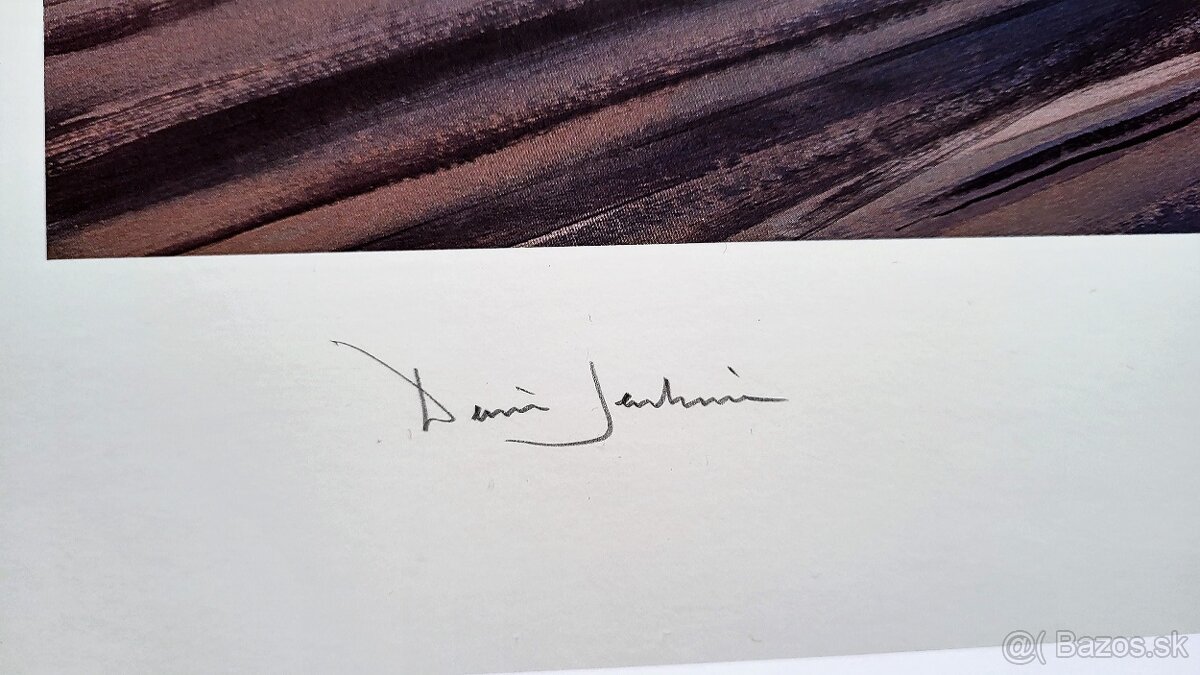 Denis Jenkins
@( Bazos.sk